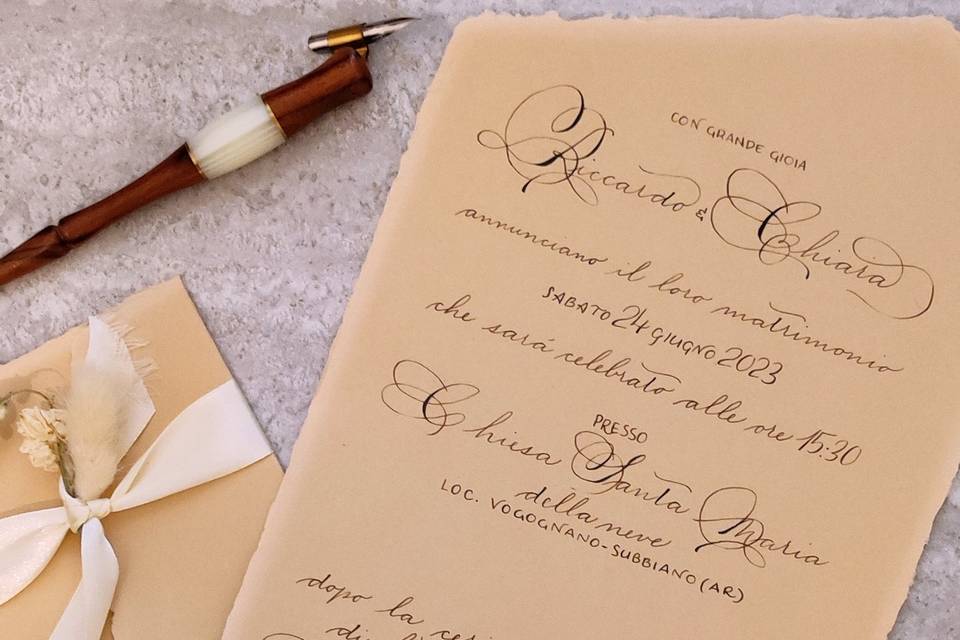 CON GRANDE GIOIA
Riccardo & Chiara
annunciano il loro matrimonio
SABATO 24 GIUGNO 2023
che sará celebrato alle ore 15:30
PRESSO
Chiesa Santa Maria
della neve
LOC. VOGOGNANO-SUBBIANO (AR)
dopo la